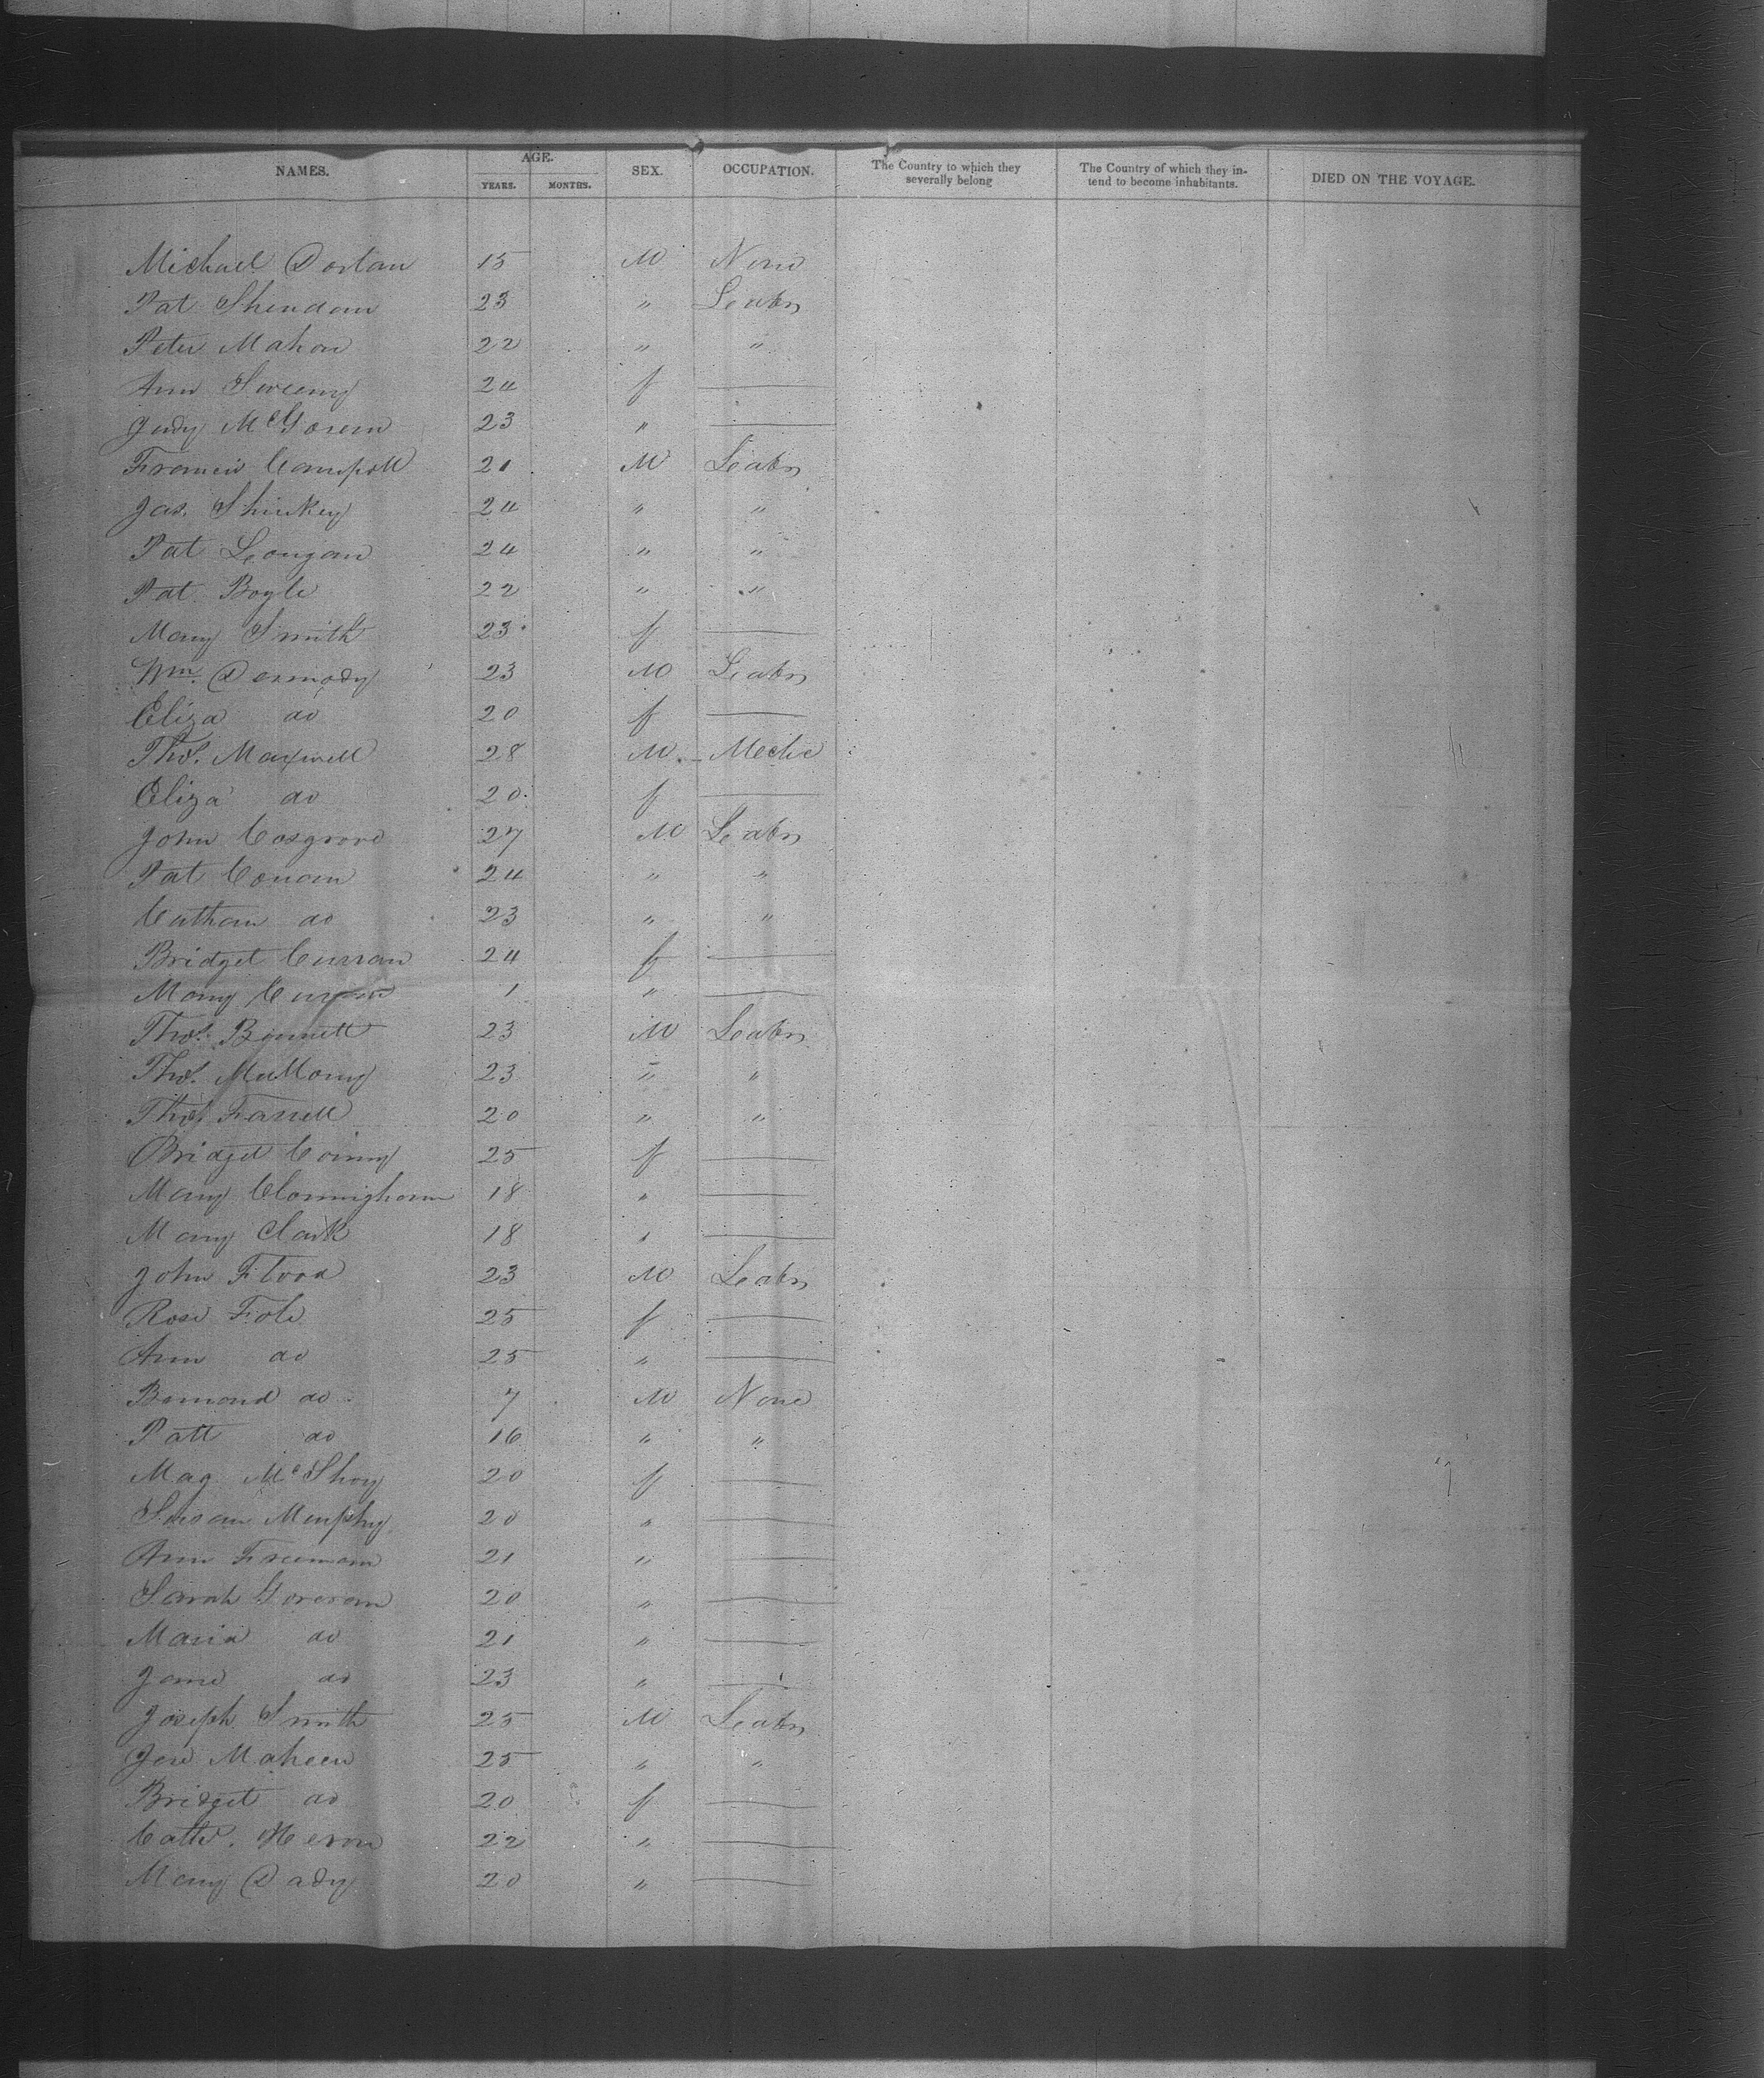 NAMES. AGE. SEX. OCCUPATION. The Country to which they severally belong The Country of which they in-tend to become inhabitants. DIED ON THE VOYAGE.
YEARS. MONTHS.
Michael Dorlan 15 M None
Pat Sheridan 23 " Leabr
Peter Mahon 22 " "
Ann Sweeny 24 f
Judy McGovern 23 "
Francis Campbell 21 M Leabr
Jas. Shinkey 24 " "
Pat Leongan 24 " "
Pat Boyle 22 " "
Mary Smith 23 f
Wm. Dermody 23 M Leabr
Eliza do 20 f
Thos. Maxwell 28 M Mechc
Eliza do 20 f
John Cosgrove 27 M Leabr
Pat Conan 24 " "
Cathan do 23 " "
Bridget Curran 24 f
Mary Curran 1 "
Thos. Bennett 23 M Leabr
Thos. Mullany 23 " "
Thos. Farrell 20 " "
Bridget 25 f
Mary Clonningham 18 "
Mary Clark 18 "
John Flood 23 M Leabr
Rose Fole 25 f
Ann do 25 "
do 7 M None
Patt do 16 " "
Mag McShoy 20 f
Susan Murphy 20 "
Ann Freeman 21 "
Sarah 20 "
Maria do 21 "
Jane do 23 "
Joseph Smith 25 M Leabr
Maheen 25 " "
Bridget do 20 f
Cathe. Heron 22 "
Mary Dady 20 "